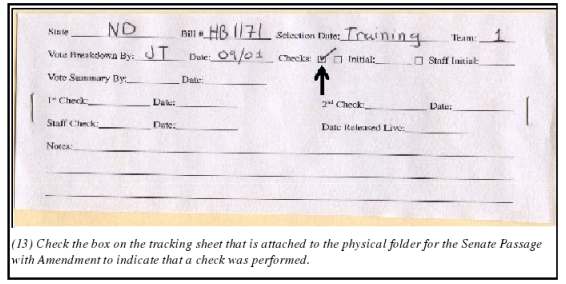 State ND Bill # HB 1171 Selection Date: Training Team: 1
Vote Breakdown By: JT Date: 09/01 Checks: Initial: Staff Initial:
Vote Summary By: Date:
1st Check: Date: 2nd Check: Date:
Staff Check: Date: Date Released Live:
Notes:
(13) Check the box on the tracking sheet that is attached to the physical folder for the Senate Passage
with Amendment to indicate that a check was performed.